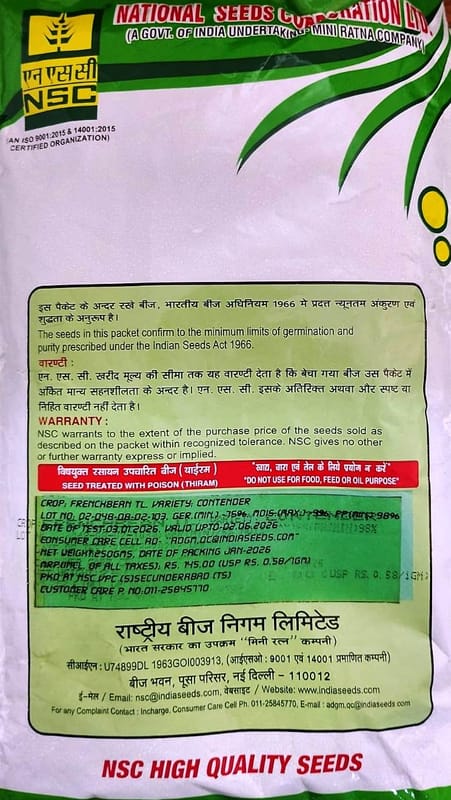 NATIONAL SEEDS CORPORATION LTD.
(A GOVT. OF INDIA UNDERTAKING- MINI RATNA COMPANY)
एन एस सी
NSC
(AN ISO 9001:2015 & 14001:2015
CERTIFIED ORGANIZATION)
इस पैकेट के अन्दर रखे बीज, भारतीय बीज अधिनियम 1966 मे प्रदत्त न्यूनतम अंकुरण एवं
शुद्धता के अनुरूप है।
The seeds in this packet confirm to the minimum limits of germination and
purity prescribed under the Indian Seeds Act 1966.
वारण्टी :
एन. एस. सी. खरीद मूल्य की सीमा तक यह वारण्टी देता है कि बेचा गया बीज उस पैकेट में
अंकित मान्य सहनशीलता के अन्दर है। एन. एस. सी. इसके अतिरिक्त अथवा और स्पष्ट या
निहित वारण्टी नहीं देता है।
WARRANTY :
NSC warrants to the extent of the purchase price of the seeds sold as
described on the packet within recognized tolerance. NSC gives no other
or further warranty express or implied.
विषयुक्त रसायन उपचारित बीज (थाईरम) "खाद्य, चारा एवं तेल के लिये प्रयोग न करें"
SEED TREATED WITH POISON (THIRAM) "DO NOT USE FOR FOOD, FEED OR OIL PURPOSE"
CROP: FRENCHBEAN TL, VARIETY: CONTENDER
LOT NO. 02-048-08-02-103, GER.(MIN.) -75%, MOIS.(MAX.) -9%, PP(MIN.) 98%
DATE OF TEST:03.01.2026, VALID UPTO:02.06.2026
CONSUMER CARE CELL AD- "ADGM.QC@INDIASEEDS.COM"
NET WEIGHT:250GMS, DATE OF PACKING JAN-2026
MRP(INCL. OF ALL TAXES), RS. 145.00 (USP RS. 0.58/1GM)
PKD AT NSC VPC (S)SECUNDERABAD (TS)
CUSTOMER CARE P. NO:011-25845770
राष्ट्रीय बीज निगम लिमिटेड
(भारत सरकार का उपक्रम "मिनी रत्न" कम्पनी)
सीआईएन : U74899DL 1963GOI003913, (आईएसओ : 9001 एवं 14001 प्रमाणित कम्पनी)
बीज भवन, पूसा परिसर, नई दिल्ली - 110012
ई-मेल / Email: nsc@indiaseeds.com, वेबसाइट / Website: www.indiaseeds.com
For any Complaint Contact : Incharge, Consumer Care Cell Ph. 011-25845770, E-mail : adgm.qc@indiaseeds.com
NSC HIGH QUALITY SEEDS